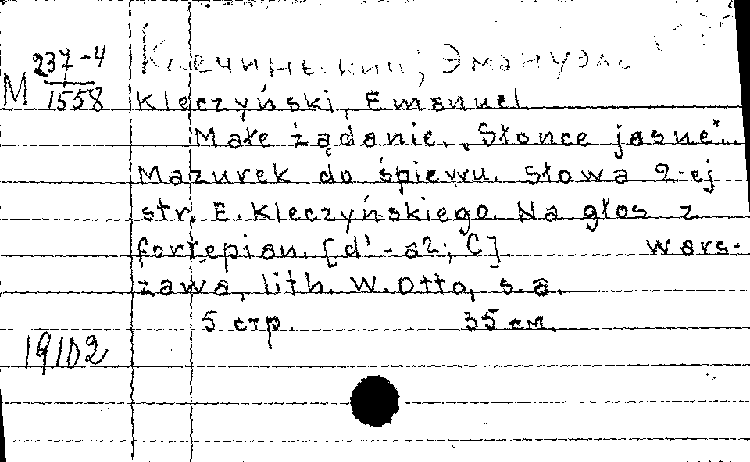 М 237-4
1558
Клечиньский, Эмануэль
Kleczyński, Emanuel
Małe żądanie. „Słońce jasne"..
Mazurek do śpiewu. Słowa 2-ej
str. E. Kleczyńskiego. Na głos z
fortepian. [d¹-a2; C] Wars-
zawa, lith. W. Otto, s.a.
5 стр. 35 см.
19102